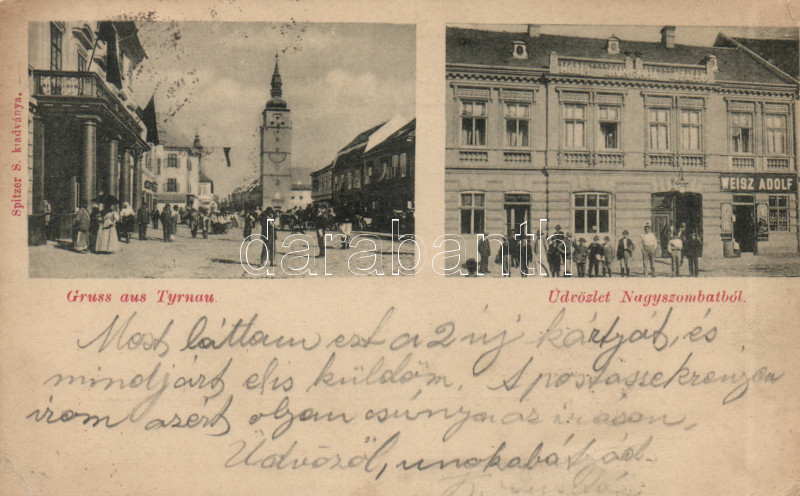 Spitzer S. kiadványa.
WEISZ ADOLF
darabanth.com
Gruss aus Tyrnau
Üdvözlet Nagyszombatból.
Most láttam ezt a 2 új kártyát, és
mindjárt el is küldöm. A
irom azért olyan csúnya az írásom.
Üdvözöl, unokabátjád.